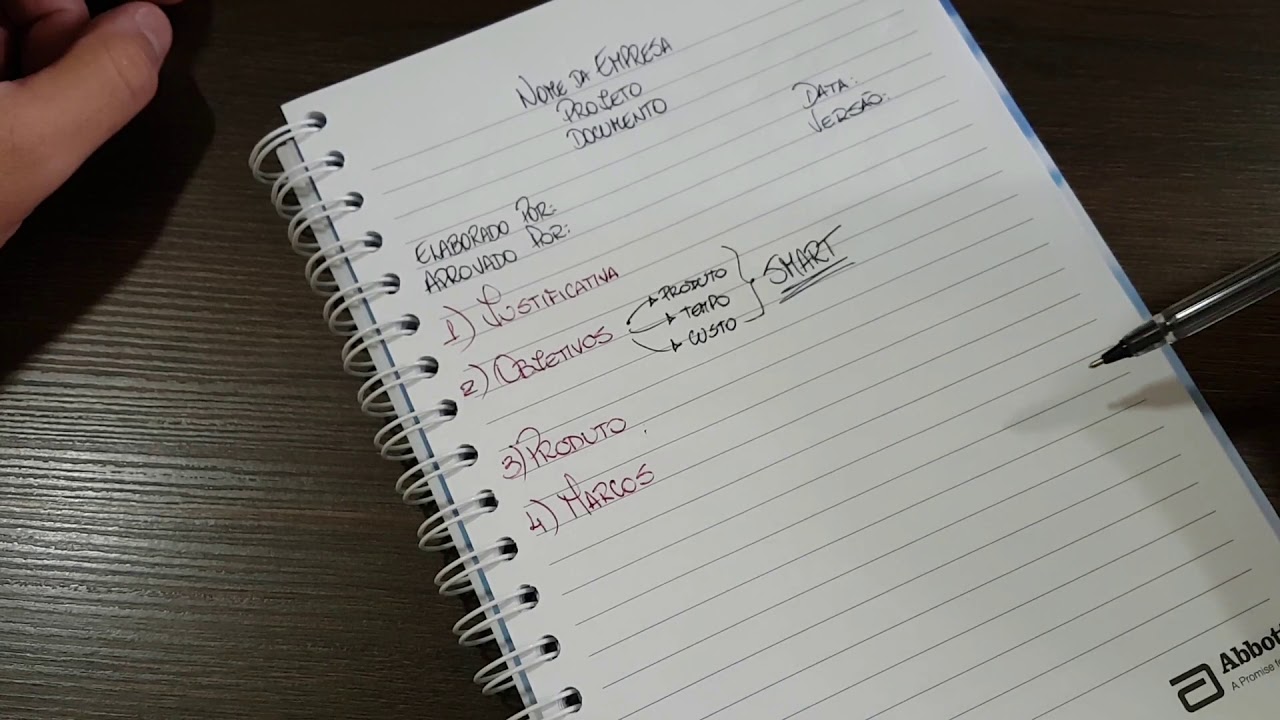 NOME DA EMPRESA
PROJETO
DOCUMENTO
DATA:
VERSÃO:
ELABORADO POR:
APROVADO POR:
1) JUSTIFICATIVA
2) OBJETIVOS
PRODUTO
TEMPO
CUSTO
SMART
3) PRODUTO.
4) MARCOS
Abbott
A Promise